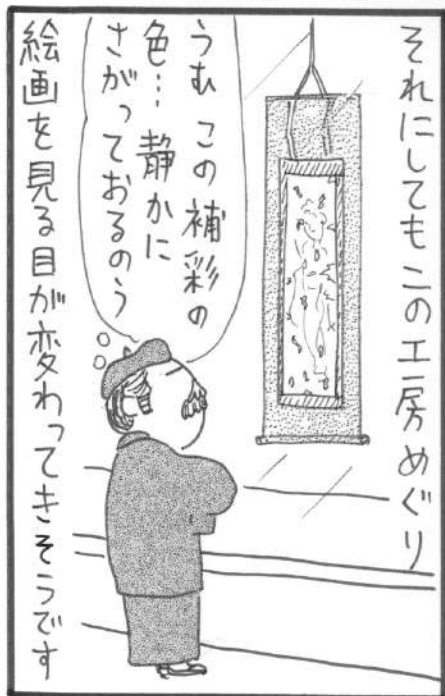 それにしてもこの工房めぐり
うむ この補彩の
色… 静かに
さがっておるのう
絵画を見る目が変わってきそうです